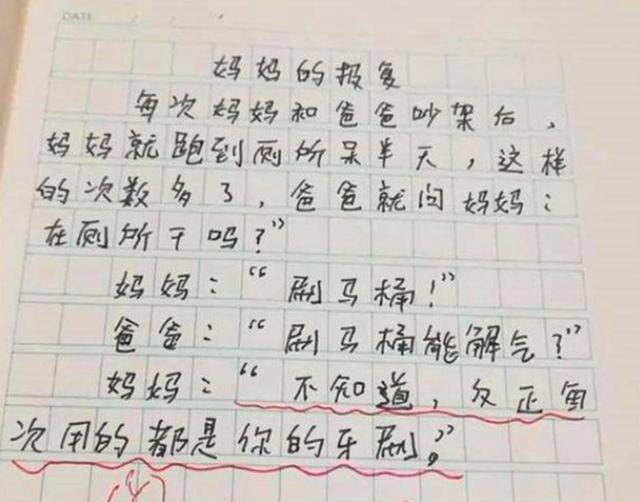 DATE
妈妈的报复
每次妈妈和爸爸吵架后，
妈妈就跑到厕所呆半天，这样
的次数多了，爸爸就问妈妈：
在厕所干吗？”
妈妈：“刷马桶！”
爸爸：“刷马桶能解气？”
妈妈：“不知道，反正每
次用的都是你的牙刷。”